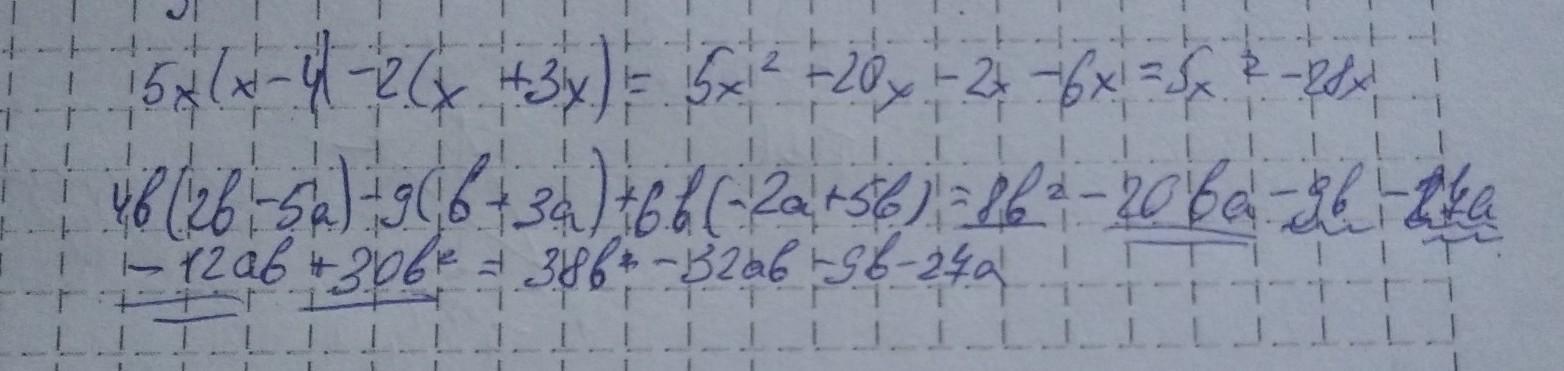 5x(x-4)-2(x+3x)= 5x² -20x -2x -6x =5x² -28x
4b(2b-5a)-9(b+3a)+6b(-2a+5b)=8b²-20ba-9b-27a
-12ab+30b²=38b²-32ab-9b-27a